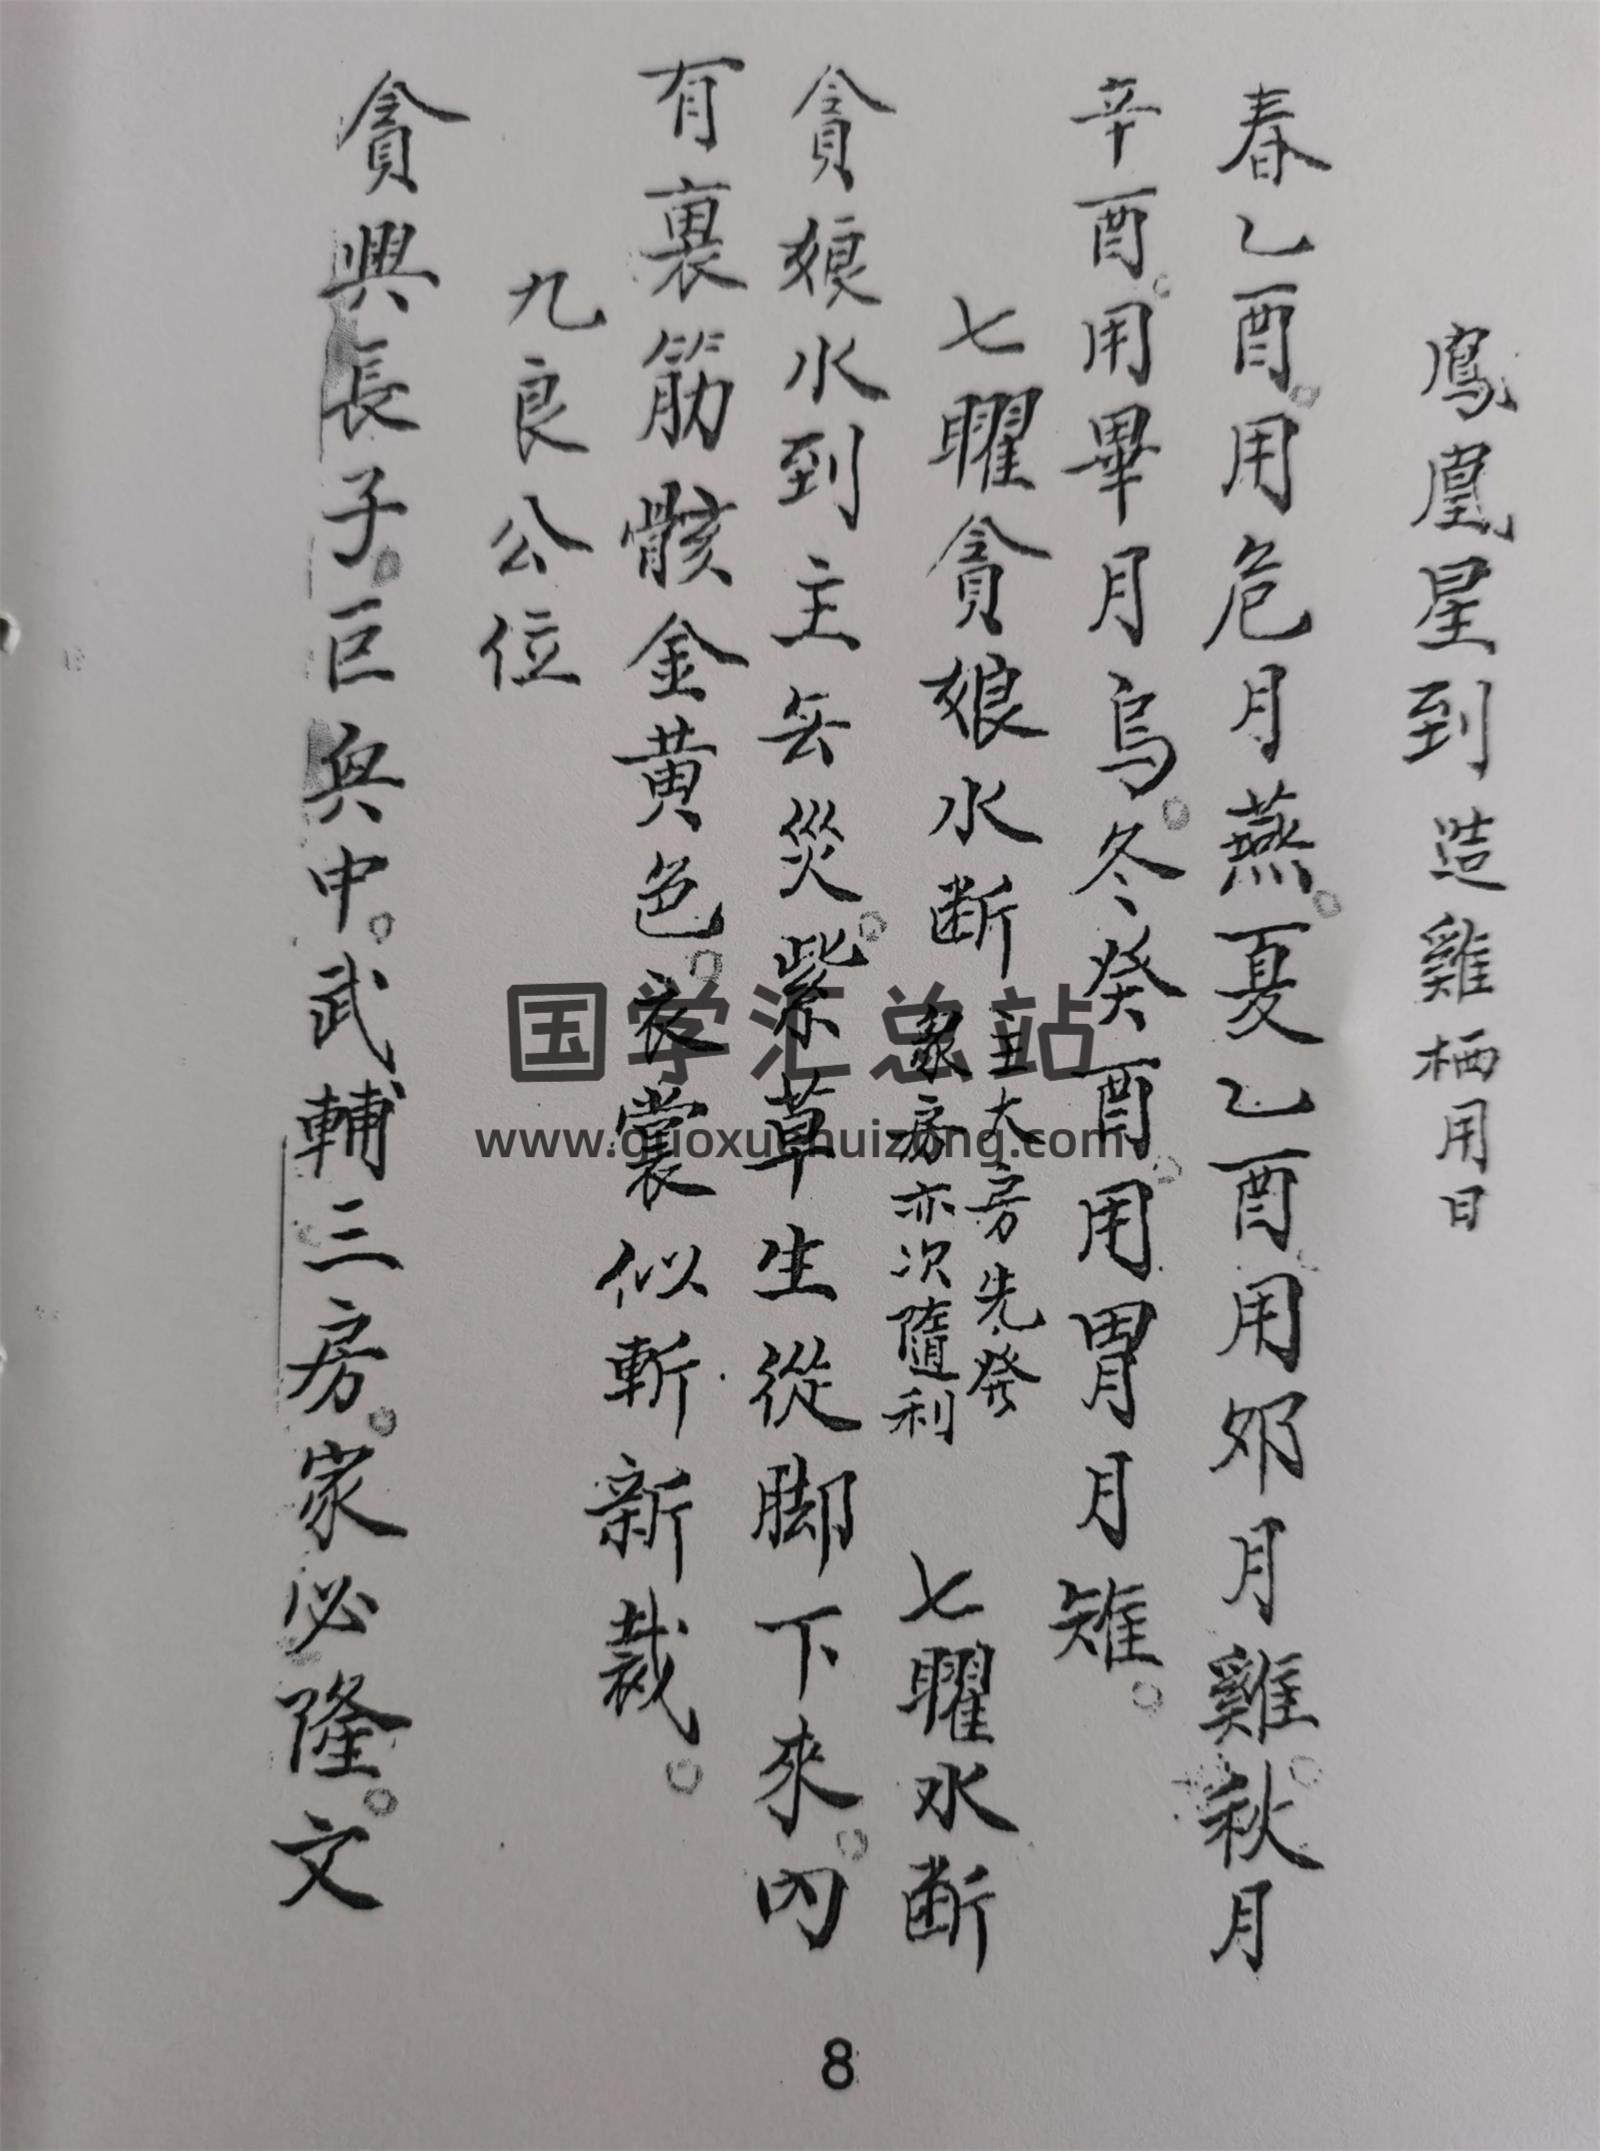 鳳凰星到造雞栖用日
春乙酉。用危月燕。夏乙酉用昴月雞。秋月
辛酉。用畢月烏。冬癸酉。用胃月雉。
七曜貪娘水斷 主大房先發 衆房亦次隨利 七曜水斷
貪娘水到主無災。紫草生從脚下來。內
有裏筋骸金黃色。衣裳似斬新裁。
九良公位
貪興長子。巨興中。武輔三房。家必隆。文
国学汇总站
www.guoxuehuizong.com
8